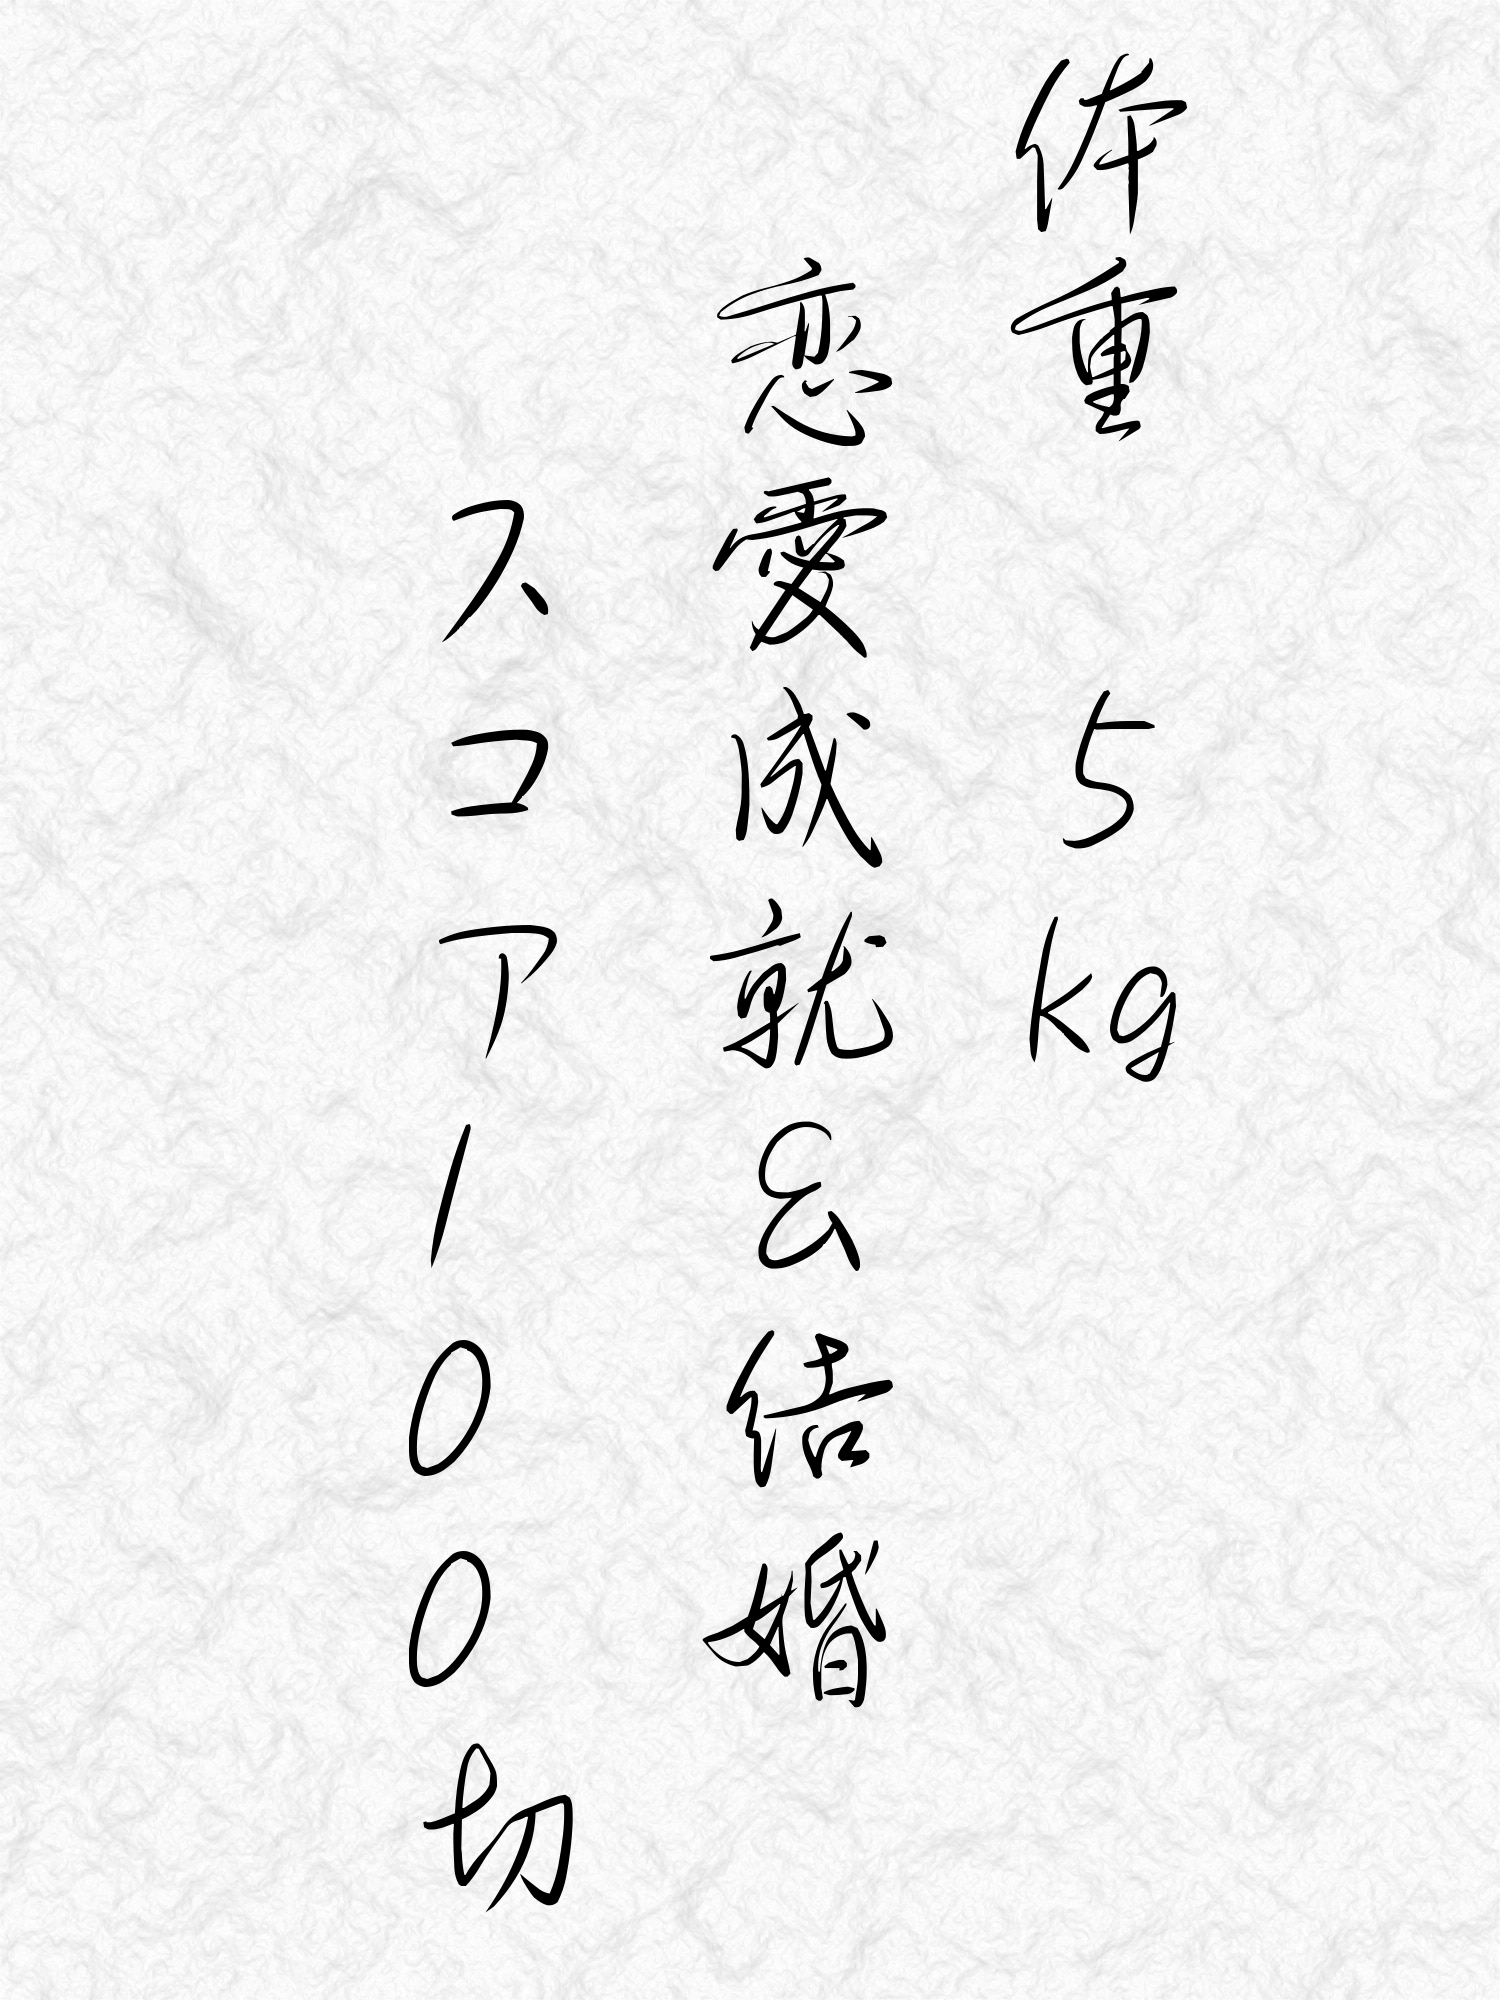 体重　5kg
恋愛成就&結婚
スコア100切